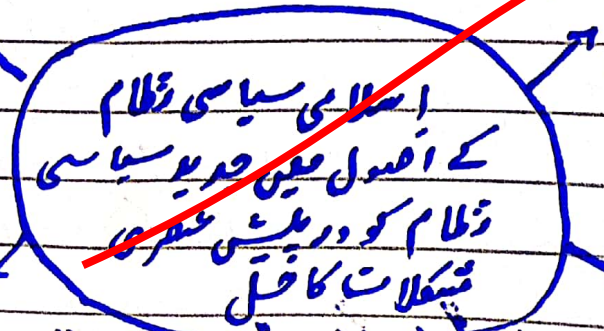 اسلامی سیاسی نظام
کے اصول میں جدید سیاسی
نظام کو درپیش عصری
مشکلات کا حل